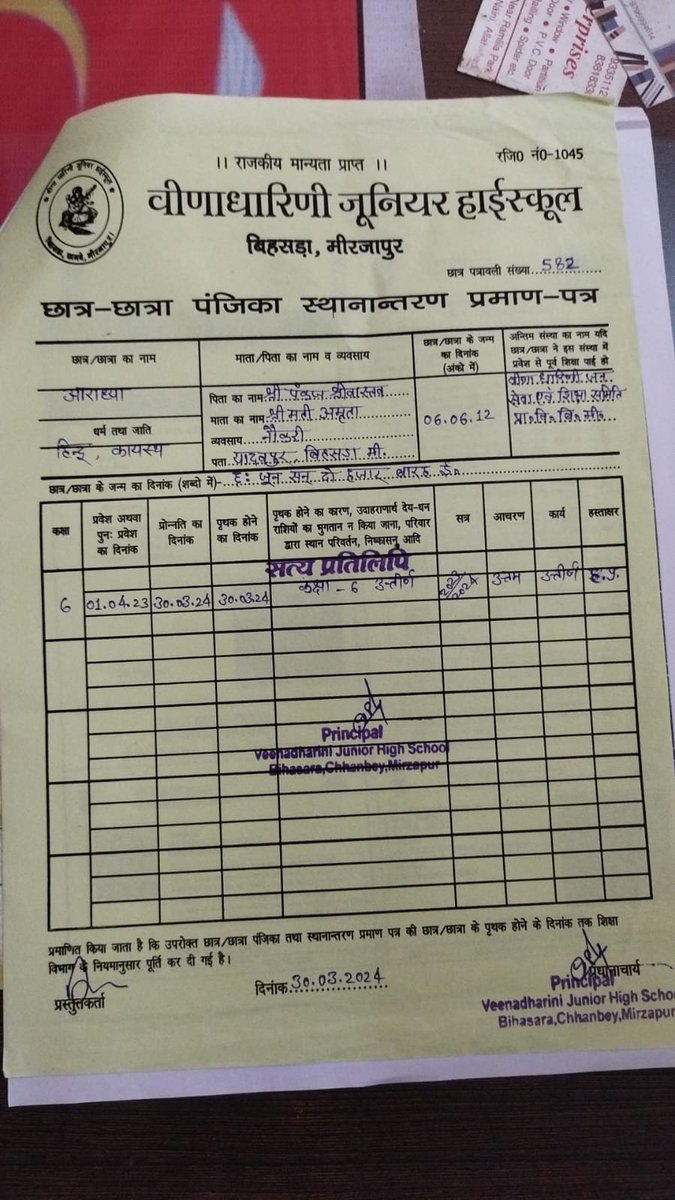 erprises
9335112
Window • Partition
Door • P.V.C. Door
Near Ramlila Park
।। राजकीय मान्यता प्राप्त ।।
रजि0 नं0-1045
वीणाधारिणी जूनियर हाईस्कूल
बिहसड़ा, मीरजापुर
छात्र पत्रावली संख्या...582
छात्र-छात्रा पंजिका स्थानान्तरण प्रमाण-पत्र
छात्र/छात्रा का नाम
माता/पिता का नाम व व्यवसाय
छात्र/छात्रा के जन्म का दिनांक (अंको में)
अन्तिम संस्था का नाम यदि छात्र/छात्रा ने इस संस्था में प्रवेश से पूर्व शिक्षा पाई हो
आराध्या
पिता का नाम श्री पंकज श्रीवास्तव
माता का नाम श्रीमती अमृता
06.06.12
वीणा धारिणी जन सेवा एवं शिक्षा समिति प्रा. वि. बि. मी.
धर्म तथा जाति
हिन्दू, कायस्थ
व्यवसाय नौकरी
पता यादवपुर, बिहसडा मी.
छात्र/छात्रा के जन्म का दिनांक (शब्दो में)- छः जून सन् दो हजार बारह ई.
कक्षा
प्रवेश अथवा पुनः प्रवेश का दिनांक
प्रोन्नति का दिनांक
पृथक होने का दिनांक
पृथक होने का कारण, उदाहरणार्थ देय-धन राशियों का भुगतान न किया जाना, परिवार द्वारा स्थान परिवर्तन, निष्कासन आदि
सत्र
आचरण
कार्य
हस्ताक्षर
सत्य प्रतिलिपि
6
01.04.23
30.03.24
30.03.24
कक्षा - 6 उत्तीर्ण
उत्तम
उत्तीर्ण
ह.पृ.
Principal
Veenadharini Junior High School
Bihasara,Chhanbey,Mirzapur
प्रमाणित किया जाता है कि उपरोक्त छात्र/छात्रा पंजिका तथा स्थानान्तरण प्रमाण पत्र की छात्र/छात्रा के पृथक होने के दिनांक तक शिक्षा
विभाग के नियमानुसार पूर्ति कर दी गई है।
प्रस्तुतकर्ता
दिनांक 30.03.2024
प्रधानाचार्य
Principal
Veenadharini Junior High Schoo
Bihasara,Chhanbey,Mirzapur